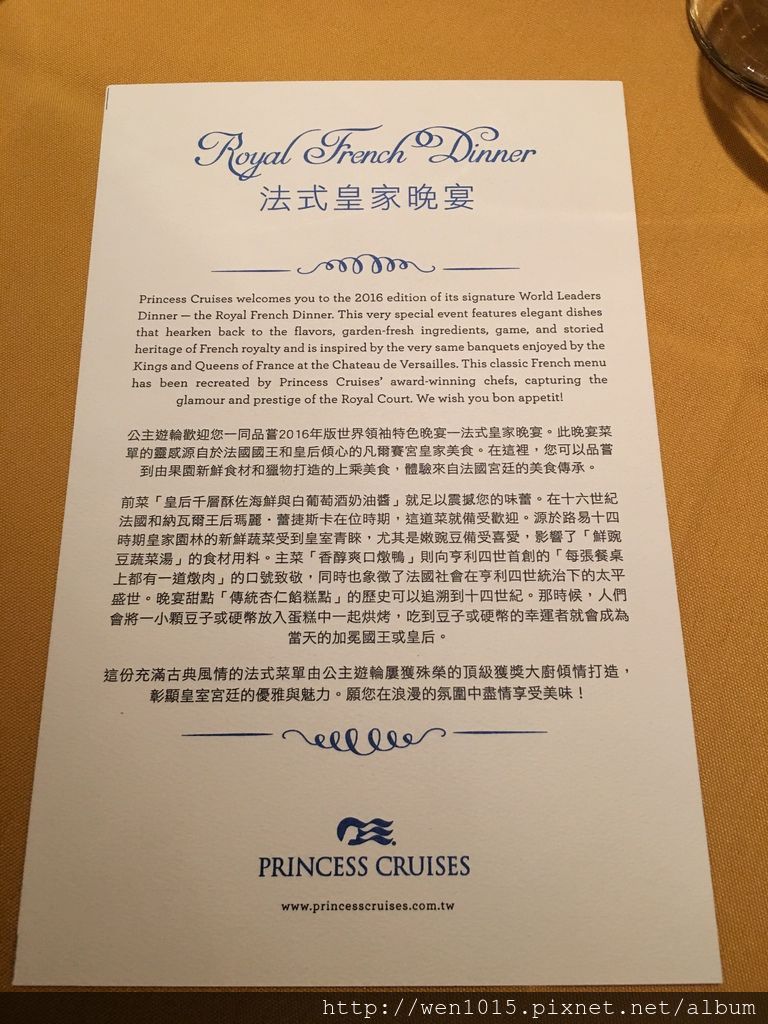 Royal French Dinner
法式皇家晚宴
Princess Cruises welcomes you to the 2016 edition of its signature World Leaders
Dinner — the Royal French Dinner. This very special event features elegant dishes
that hearken back to the flavors, garden-fresh ingredients, game, and storied
heritage of French royalty and is inspired by the very same banquets enjoyed by the
Kings and Queens of France at the Chateau de Versailles. This classic French menu
has been recreated by Princess Cruises' award-winning chefs, capturing the
glamour and prestige of the Royal Court. We wish you bon appetit!
公主遊輪歡迎您一同品嘗2016年版世界領袖特色晚宴—法式皇家晚宴。此晚宴菜
單的靈感源自於法國國王和皇后傾心的凡爾賽宮皇家美食。在這裡，您可以品嘗
到由果園新鮮食材和獵物打造的上乘美食，體驗來自法國宮廷的美食傳承。
前菜「皇后千層酥佐海鮮與白葡萄酒奶油醬」就足以震撼您的味蕾。在十六世紀
法國和納瓦爾王后瑪麗・蕾捷斯卡在位時期，這道菜就備受歡迎。源於路易十四
時期皇家園林的新鮮蔬菜受到皇室青睞，尤其是嫩豌豆備受喜愛，影響了「鮮豌
豆蔬菜湯」的食材用料。主菜「香醇爽口燉鴨」則向亨利四世首創的「每張餐桌
上都有一道燉肉」的口號致敬，同時也象徵了法國社會在亨利四世統治下的太平
盛世。晚宴甜點「傳統杏仁餡糕點」的歷史可以追溯到十四世紀。那時候，人們
會將一小顆豆子或硬幣放入蛋糕中一起烘烤，吃到豆子或硬幣的幸運者就會成為
當天的加冕國王或皇后。
這份充滿古典風情的法式菜單由公主遊輪屢獲殊榮的頂級獲獎大廚傾情打造，
彰顯皇室宮廷的優雅與魅力。願您在浪漫的氛圍中盡情享受美味！
PRINCESS CRUISES
www.princesscruises.com.tw
http://wen1015.pixnet.net/album